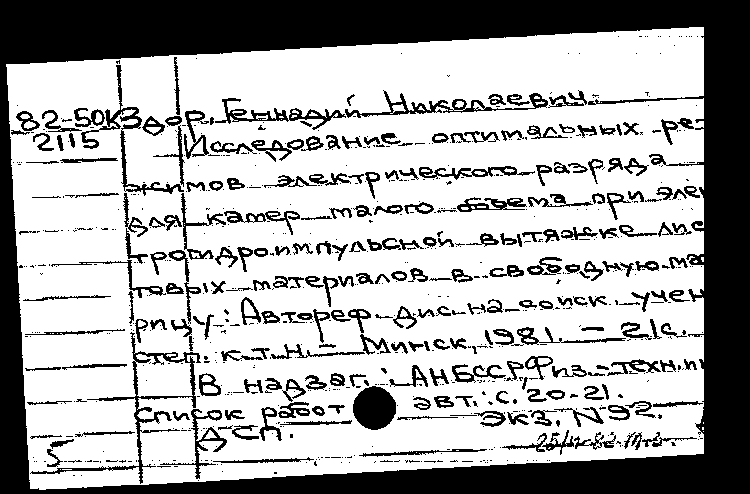 82-50К Здор, Геннадий Николаевич.
2115 Исследование оптимальных ре-
жимов электрического разряда
для камер малого объема при элек
трогидроимпульсной вытяжке лис
товых материалов в свободную мат
рицу: Автореф. дис. на соиск. учен
степ. к.т.н. – Минск, 1981. – 21с.
В надзаг.: АН БССР, Физ.-техн. ин
Список работ авт.: с. 20-21.
ДСП. Экз. №92.
5 25/II-82